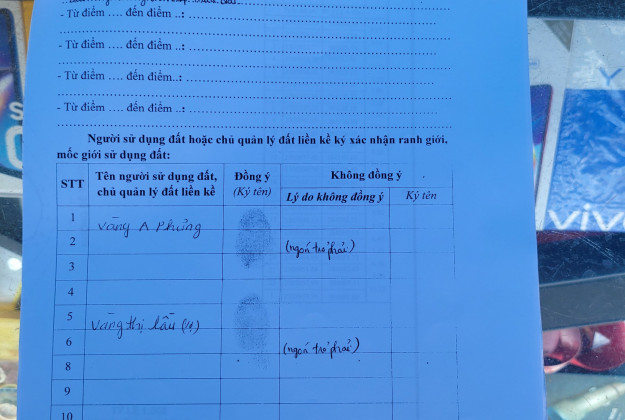 - Từ điểm .... đến điểm ..:
- Từ điểm .... đến điểm ..:
- Từ điểm .... đến điểm..:
- Từ điểm .... đến điểm ..:
Người sử dụng đất hoặc chủ quản lý đất liền kề ký xác nhận ranh giới,
mốc giới sử dụng đất:
STT Tên người sử dụng đất, chủ quản lý đất liền kề Đồng ý (Ký tên) Không đồng ý
Lý do không đồng ý Ký tên
1 Vàng A Phừng
2 (ngón trỏ phải)
3
4
5 Vàng thị Lầu (H)
6 (ngón trỏ phải)
8
9
10
Y
viv